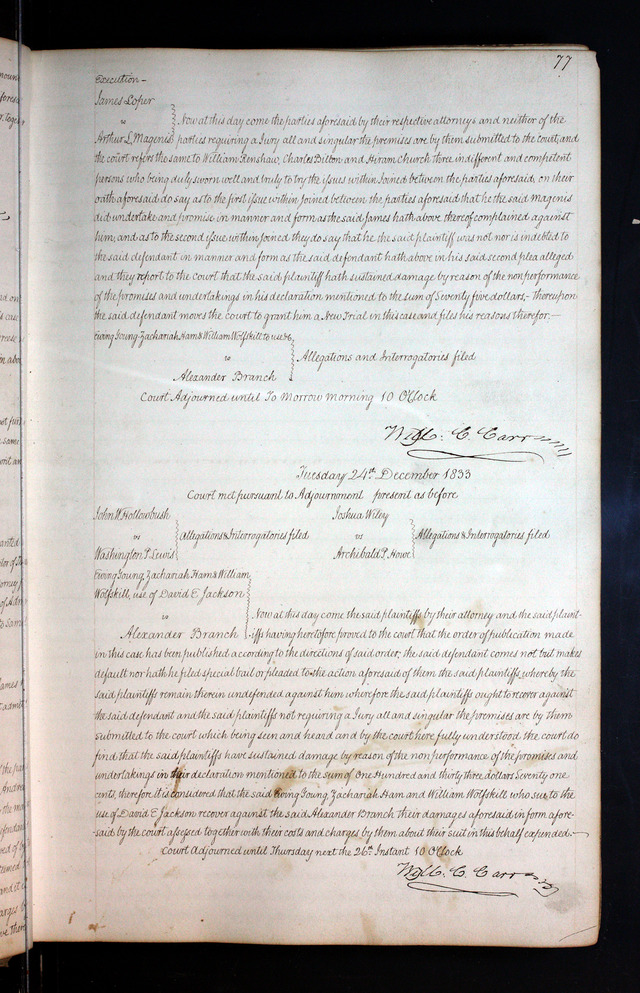 77
Execution —
James Loper
vs
Now at this day come the parties aforesaid by their respective attorneys and neither of the
Arthur L. Magenis parties requiring a Jury all and singular the premises are by them submitted to the court, and
the court refers the same to William Renshaw, Charles Dillon and Hiram Church three indifferent and competent
persons who being duly sworn well and truly to try the issues within Joined between the parties aforesaid, on their
oath aforesaid do say as to the first issue within Joined between the parties aforesaid that he the said Magenis
did undertake and promise in manner and form as the said James hath above thereof complained against
him, and as to the second issue within Joined they do say that he the said plaintiff was not nor is indebted to
the said defendant in manner and form as the said defendant hath above in his said second plea alleged
and they report to the court that the said plaintiff hath sustained damage by reason of the nonperformance
of the promises and undertakings in his declaration mentioned to the sum of Seventy five dollars, — thereupon
the said defendant moves the court to grant him a New Trial in this case and files his reasons therefor. —
Ewing Young, Zachariah Ham & William Wolfskill to use &c
vs
Allegations and Interrogatories filed
Alexander Branch
Court Adjourned until To Morrow morning 10 O'Clock
Will. C. Carr
Tuesday 24th December 1833
Court met pursuant to Adjournment present as before
John W. Hollowbush
vs
Allegations & Interrogatories filed
Washington P. Lewis
Joshua Wiley
vs
Allegations & Interrogatories filed
Archibald P. Howe
Ewing Young, Zachariah Ham & William
Wolfskill, use of David E. Jackson
vs
Now at this day come the said plaintiffs by their attorney and the said plaint-
Alexander Branch iffs having heretofore proved to the court that the order of publication made
in this case has been published according to the directions of said order, the said defendant comes not but makes
default nor hath he filed special bail or pleaded to the action aforesaid of them the said plaintiffs, whereby the
said plaintiffs remain therein undefended against him wherefore the said plaintiffs ought to recover against
the said defendant and the said plaintiffs not requiring a Jury all and singular the premises are by them
submitted to the court which being seen and heard and by the court here fully understood the court do
find that the said plaintiffs have sustained damage by reason of the nonperformance of the promises and
undertakings in their declaration mentioned to the sum of One Hundred and thirty three dollars Seventy one
cents, therefore it is considered that the said Ewing Young, Zachariah Ham and William Wolfskill who sue to the
use of David E. Jackson recover against the said Alexander Branch their damages aforesaid in form afore-
said by the court assessed together with their costs and charges by them about their suit in this behalf expended. —
Court Adjourned until Thursday next the 26th Instant 10 O'Clock
Will. C. Carr